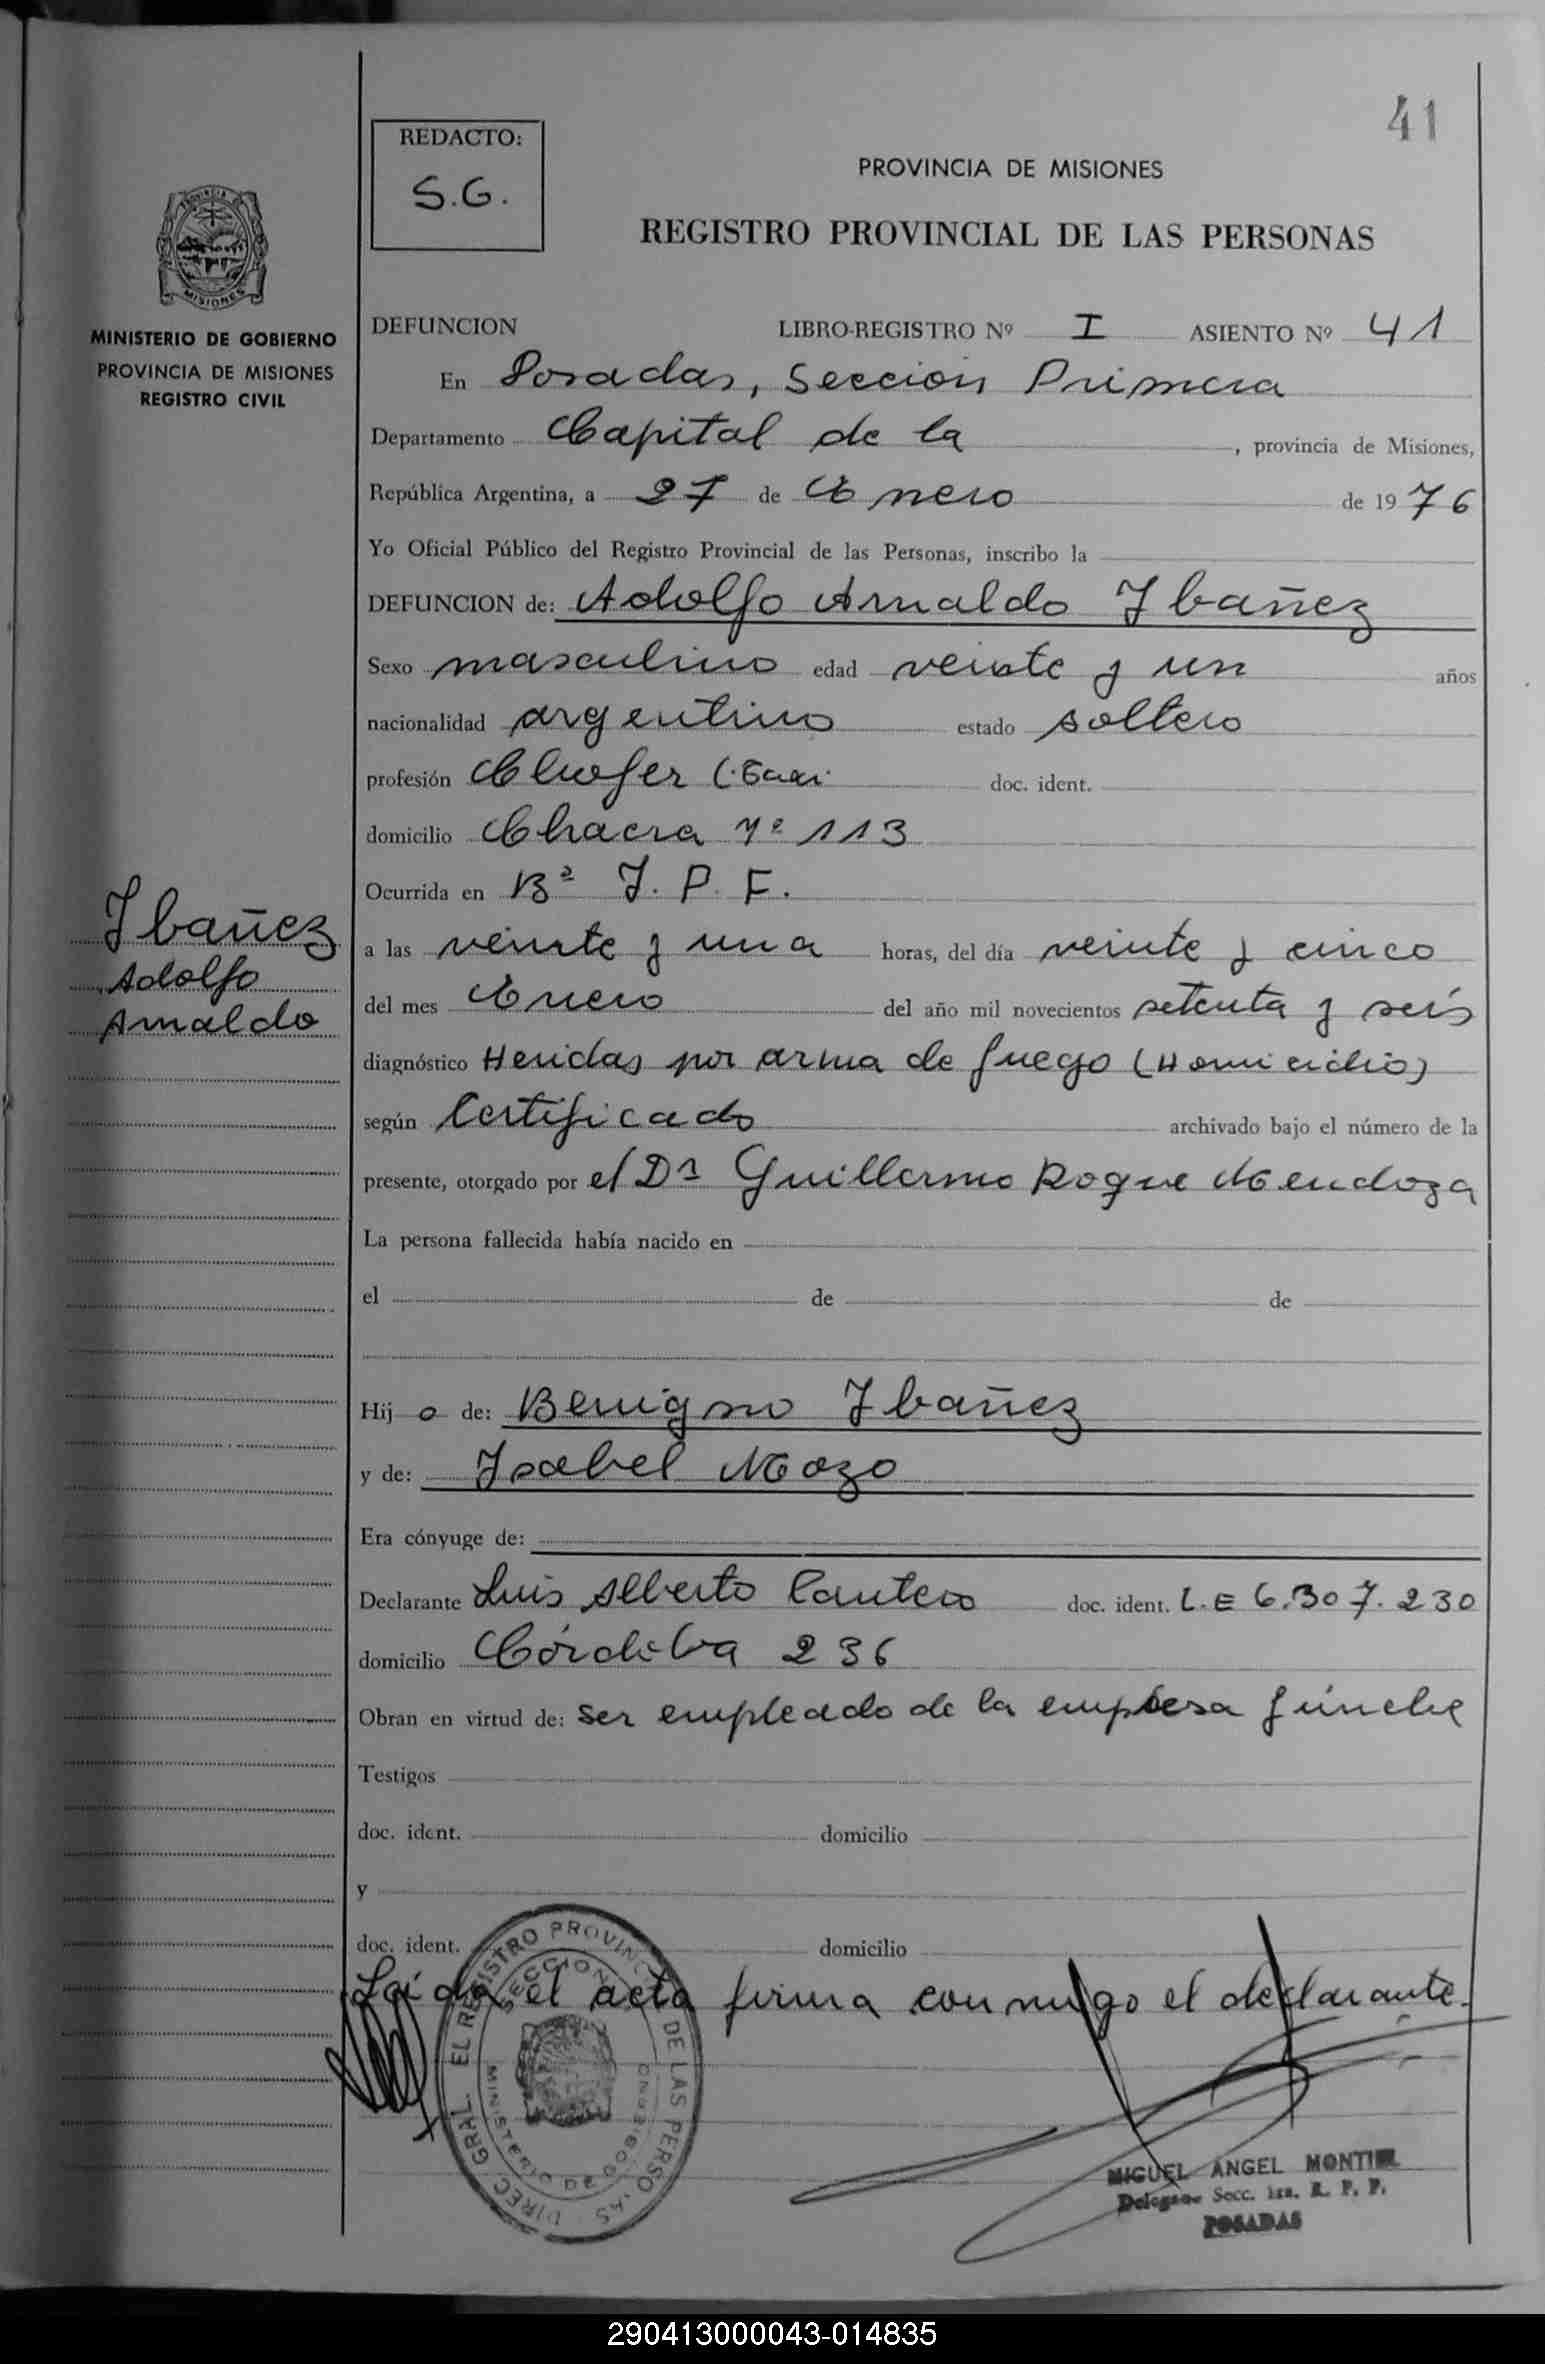 41
REDACTO:
S.G.
PROVINCIA DE MISIONES
REGISTRO PROVINCIAL DE LAS PERSONAS
PROVINCIA DE
MISIONES
MINISTERIO DE GOBIERNO
PROVINCIA DE MISIONES
REGISTRO CIVIL
DEFUNCION LIBRO-REGISTRO Nº I ASIENTO Nº 41
En Posadas, Sección Primera
Departamento Capital de la, provincia de Misiones,
República Argentina, a 27 de Enero de 1976
Yo Oficial Público del Registro Provincial de las Personas, inscribo la
DEFUNCION de: Adolfo Arnaldo Ibañez
Sexo masculino edad veinte y un años
nacionalidad argentino estado soltero
profesión Chofer doc. ident.
domicilio Chacra Nº 113
Ocurrida en Bº I. P. F.
a las veinte y una horas, del día veinte y cinco
del mes Enero del año mil novecientos setenta y seis
diagnóstico Heridas por arma de fuego (Homicidio)
según Certificado archivado bajo el número de la
presente, otorgado por el Dr Guillermo Roque Mendoza
La persona fallecida había nacido en
el de de
Hijo de: Benigno Ibañez
y de: Isabel Mozo
Era cónyuge de:
Declarante Luis Alberto Cantero doc. ident. L.E 6.307.230
domicilio Córdoba 236
Obran en virtud de: Ser empleado de la empresa fúnebre
Testigos
doc. ident. domicilio
y
doc. ident. domicilio
Leída el acta firma conmigo el declarante.
Ibañez
Adolfo
Arnaldo
DIREC. GRAL. EL REGISTRO PROVINC. DE LAS PERSONAS
SECCION
MINISTERIO DE GOBIERNO
MIGUEL ANGEL MONTIEL
Delegado Secc. 1ra. R. P. P.
POSADAS
290413000043-014835